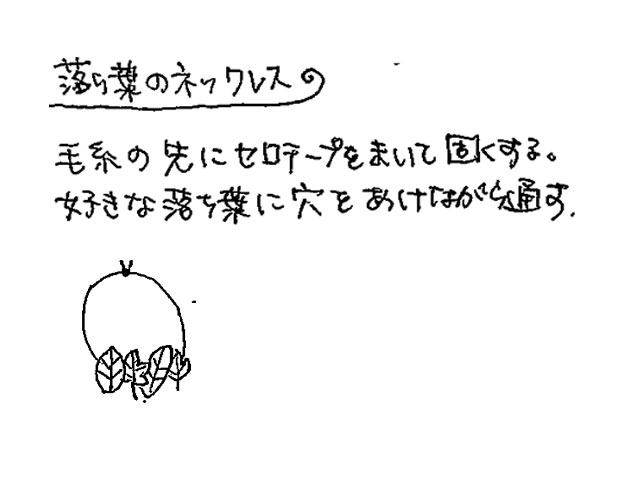 落ち葉のネックレス
毛糸の先にセロテープをまいて固くする。
好きな落ち葉に穴をあけながら通す.